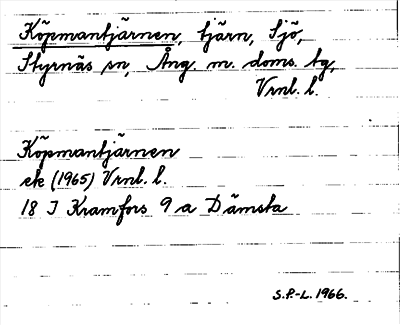 Köpmantjärnen, tjärn, Sjö,
Styrnäs sn, Ång. m. doms. tg,
Vrnl. l.
Köpmantjärnen
ek (1965) Vrnl. l.
18 I Kramfors 9 a Dämsta
S.P.-L. 1966.